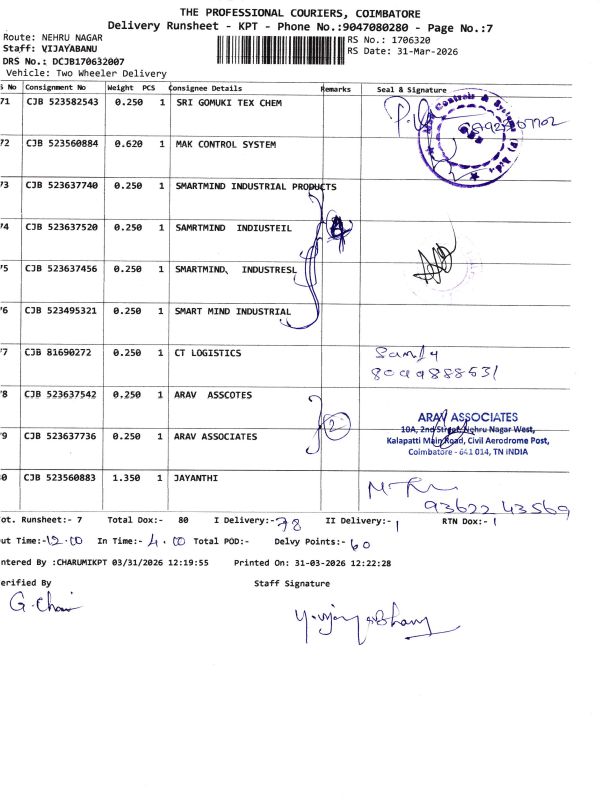 THE PROFESSIONAL COURIERS, COIMBATORE
Delivery Runsheet - KPT - Phone No.:9047080280 - Page No.:7
Route: NEHRU NAGAR RS No.: 1706320
Staff: VIJAYABANU RS Date: 31-Mar-2026
DRS No.: DCJB170632007
Vehicle: Two Wheeler Delivery
S No Consignment No Weight PCS Consignee Details Remarks Seal & Signature
71 CJB 523582543 0.250 1 SRI GOMUKI TEX CHEM
72 CJB 523560884 0.620 1 MAK CONTROL SYSTEM
73 CJB 523637740 0.250 1 SMARTMIND INDUSTRIAL PRODUCTS
74 CJB 523637520 0.250 1 SAMRTMIND INDIUSTEIL
75 CJB 523637456 0.250 1 SMARTMIND、 INDUSTRESL
76 CJB 523495321 0.250 1 SMART MIND INDUSTRIAL
77 CJB 81690272 0.250 1 CT LOGISTICS
78 CJB 523637542 0.250 1 ARAV ASSCOTES 2
ARAV ASSOCIATES
10A, 2nd Street, Nehru Nagar West,
79 CJB 523637736 0.250 1 ARAV ASSOCIATES
Kalapatti Main Road, Civil Aerodrome Post,
Coimbatore - 641 014, TN INDIA
CJB 523560883 1.350 1 JAYANTHI
93622 43569
ot. Runsheet:- 7 Total Dox:- 80 I Delivery:- 78 II Delivery:- 1 RTN Dox:- 1
ut Time:- 12.00 In Time:- 4.00 Total POD:- Delvy Points:- 60
ntered By :CHARUMIKPT 03/31/2026 12:19:55 Printed On: 31-03-2026 12:22:28
erified By Staff Signature